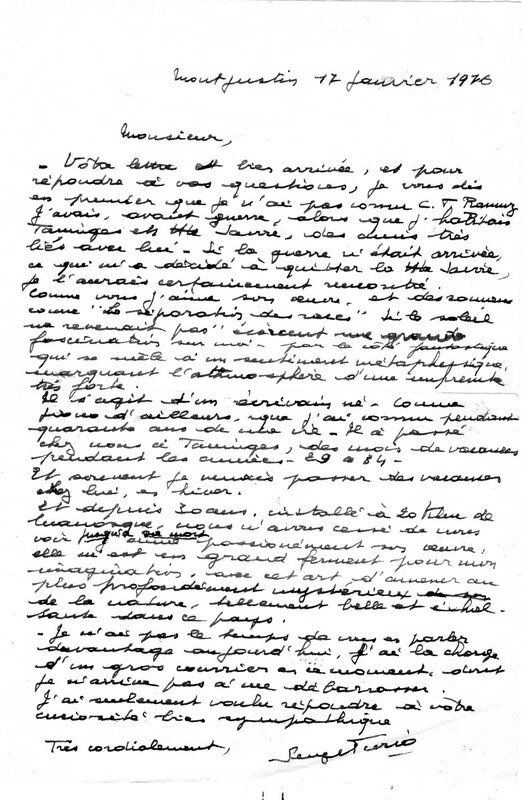 Montjustin 17 Janvier 1976
Monsieur,
- Vôtre lettre est bien arrivée, et pour
répondre à vos questions, je vous dis
en premier que je n'ai pas connu C. F. Ramuz
J'avais, avant guerre, alors que j'habitais
Taninges en Hte Savoie, des amis très
liés avec lui. Si la guerre n'était arrivée,
ce qui m'a décidé à quitter la Hte Savoie,
je l'aurais certainement rencontré.
Comme vous j'aime son œuvre, et des romans
comme "La séparation des races" Si le soleil
ne revenait pas" exercent une grande
fascination sur moi - par le côté fantastique
qui se mêle à un sentiment métaphysique,
marquant l'atmosphère d'une empreinte
très forte.
Il s'agit d'un écrivain né - comme
Giono d'ailleurs, que j'ai connu pendant
quarante ans de ma vie - Il a passé
chez nous à Taninges, des mois de vacances
pendant les années - 29 a 34 -
Et souvent je venais passer des vacances
chez lui, en hiver.
Et depuis 30 ans, installé à 20 Klm de
Manosque, nous n'avons cessé de nous
voir jusqu'à sa mort passionément son œuvre,
elle m'est un grand ferment pour mon
imagination, avec cet art d'amener au
plus profondément mystérieux
de la nature, tellement belle et
dans ce pays.
- Je n'ai pas le temps de vous en parler
davantage aujourd'hui, j'ai la charge
d'un gros courrier en ce moment, dont
je n'arrive pas à me débarrasser.
J'ai seulement voulu répondre à vôtre
curiosité bien sympathique
Très cordialement,
Serge Fiorio